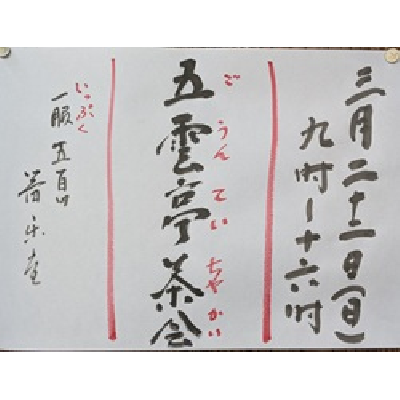 三月二十二日(日)
九时ー十六时
ごうんていちゃかい
五雲亭茶会
いっぷく
一服五百円